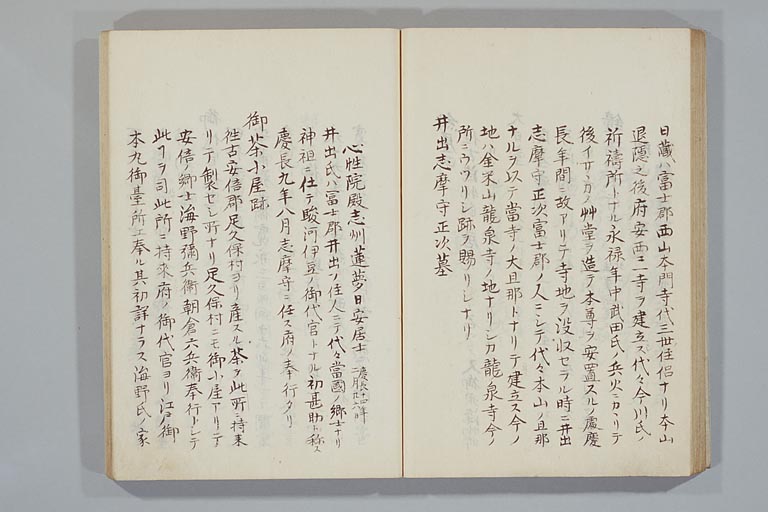 日蔵ハ富士郡西山本門寺代三世住侶ナリ本山
退隠之後府安西ニ寺ヲ建立ス代々今川氏ノ
祈禱所トナル永禄年中武田氏ノ兵火ニカヽリテ
後イサヽカノ艸堂ヲ造テ本尊ヲ安置スルノ處慶
長年間ニ故アリテ寺地ヲ没収セラル時ニ井出
志摩守正次富士郡ノ人ニシテ代々本山ノ旦那
ナルヲ以テ當寺ノ大旦那トナリテ建立ス今ノ
地ハ金米山龍泉寺ノ地ナリシカ龍泉寺今ノ
所ニウツリシ跡ヲ賜リシナリ
井出志摩守正次墓
心性院殿志州蓮夢日安居士
井出氏ハ富士郡井出ノ住人ニテ代々當國ノ郷士ナリ
神祖ニ仕テ駿河伊豆ノ御代官トナル初甚助ト称ス
慶長九年八月志摩守ニ任ス府ノ奉行タリ
御茶小屋跡
徃古安倍郡足久保村ヨリ産スル茶ヲ此所ニ持来
リテ製セシ所ナリ足久保村ニモ御小屋アリテ
安倍ノ郷士海野彌兵衛朝倉六兵衛奉行トシテ
此ヿヲ司此所ニ持来府ノ御代官ヨリ江戸御
本丸御臺所エ奉ル其初詳ナラス海野氏ノ家